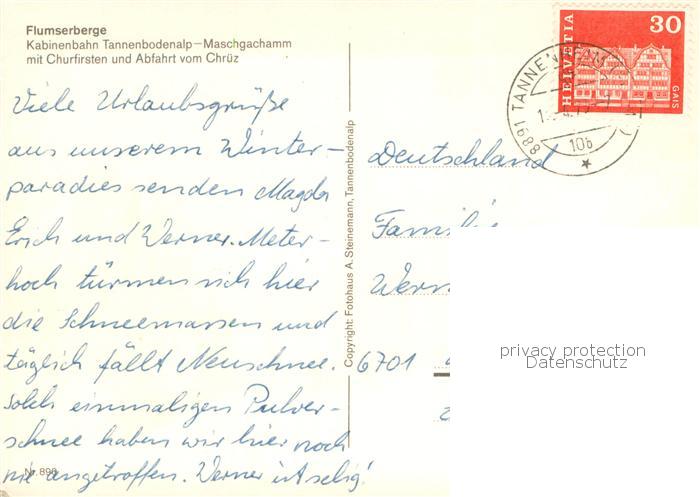 Flumserberge
Kabinenbahn Tannenbodenalp–Maschgachamm
mit Churfirsten und Abfahrt vom Chrüz
Viele Urlaubsgrüße
aus unserem Winter-
paradies senden Magda
Erich und Werner. Meter-
hoch türmen sich hier
die Schneemassen und
täglich fällt Neuschnee.
Solch einmaligen Pulver-
schnee haben wir hier noch
nie angetroffen. Werner ist selig!
Nr. 896
Copyright: Fotohaus A. Steinemann, Tannenbodenalp
30
HELVETIA
GAIS
8891 TANNEN
10
Deutschland
Famili
Wern
6701
privacy protection
Datenschutz